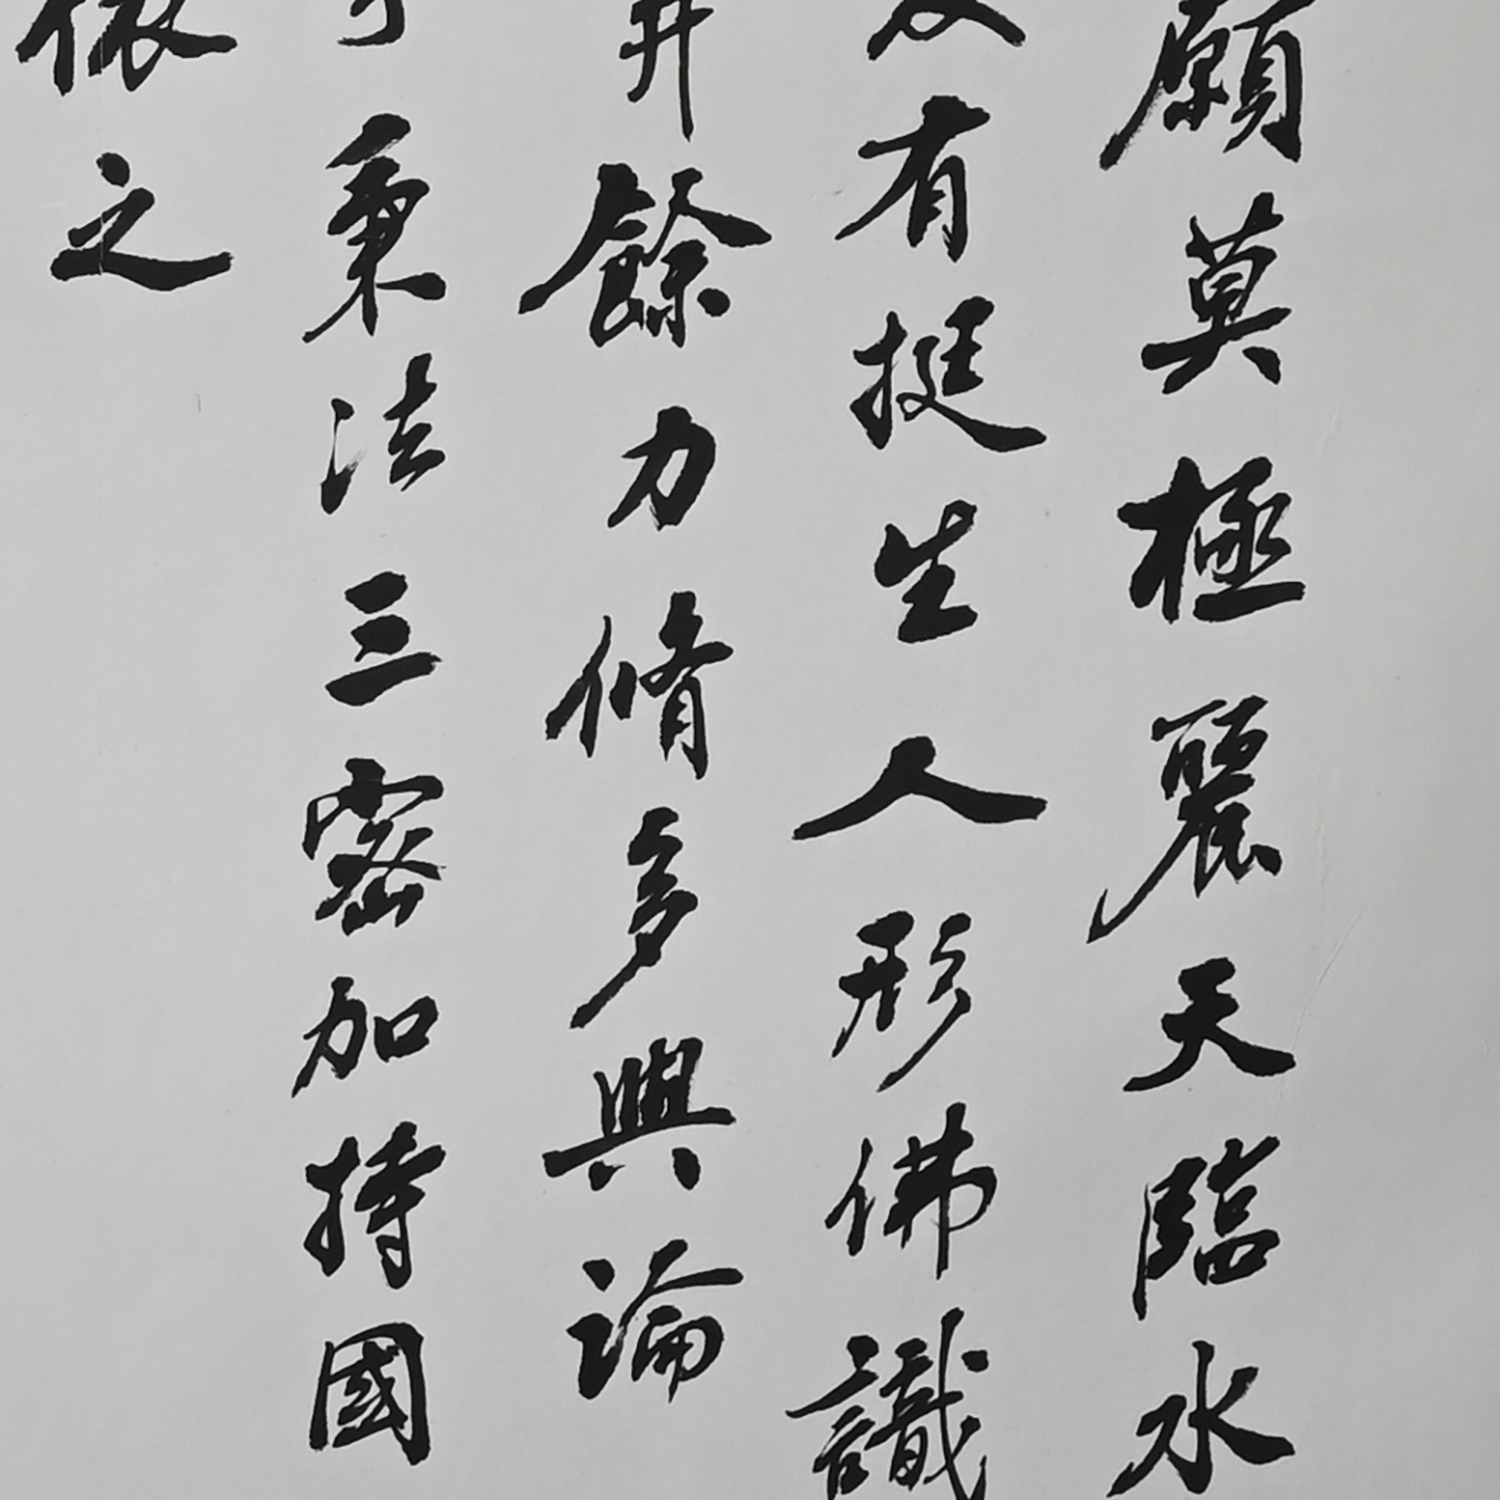 願莫極麗天臨水
有挺生人形佛識
并餘力脩多與論
秉法三密加持國
依之